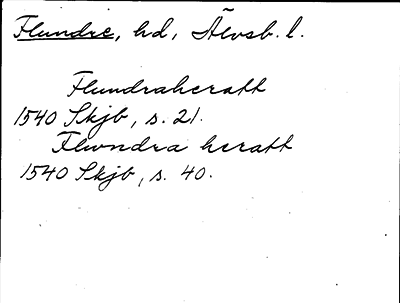 Flundre, hd, Älvsb. l.
Flundraheratt
1540 Skjb, s. 21.
Flwndra heratt
1540 Skjb, s. 40.